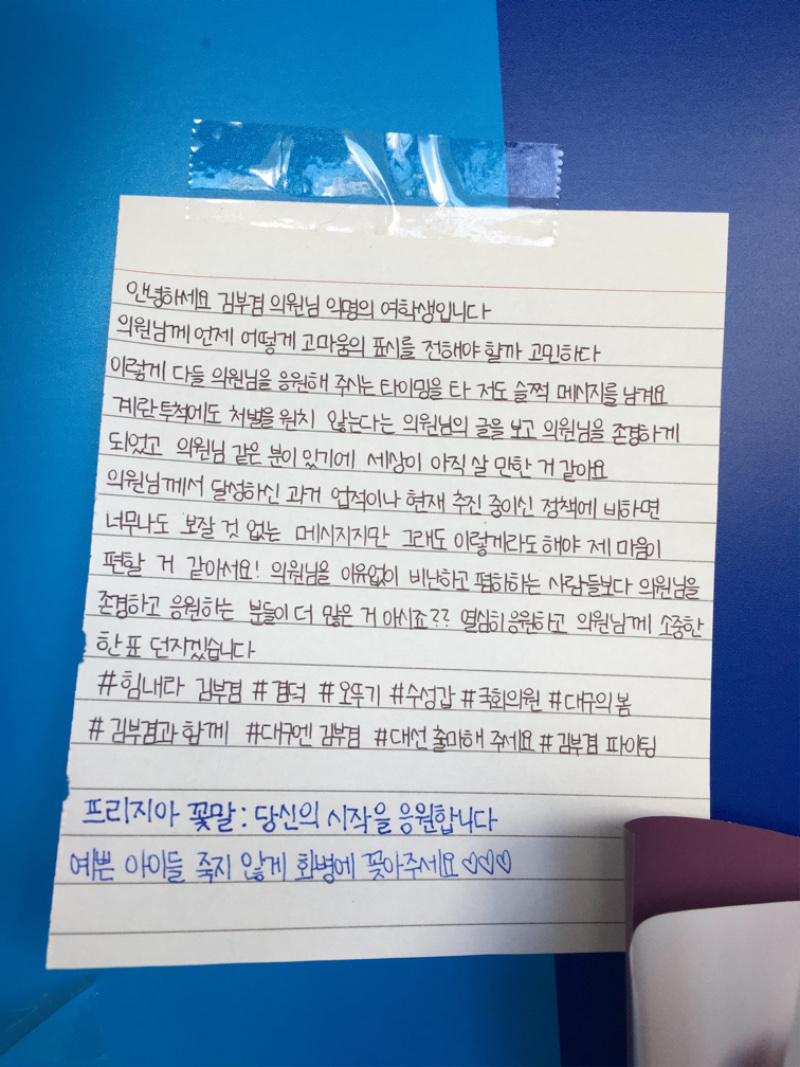 안녕하세요 김부겸 의원님 익명의 여학생입니다
의원님께 언제 어떻게 고마움의 표시를 전해야 할까 고민하다
이렇게 다들 의원님을 응원해 주시는 타이밍을 타 저도 슬쩍 메시지를 남겨요
계란 투척에도 처벌을 원치 않는다는 의원님의 글을 보고 의원님을 존경하게
되었고 의원님 같은 분이 있기에 세상이 아직 살 만한 거 같아요
의원님께서 달성하신 과거 업적이나 현재 추진 중이신 정책에 비하면
너무나도 보잘 것 없는 메시지지만 그래도 이렇게라도 해야 제 마음이
편할 거 같아서요! 의원님을 이유없이 비난하고 폄하하는 사람들보다 의원님을
존경하고 응원하는 분들이 더 많은 거 아시죠?? 열심히 응원하고 의원님께 소중한
한 표 던지겠습니다
#힘내라 김부겸 #겸덕 #오뚜기 #수성갑 #국회의원 #대구의 봄
#김부겸과 함께 #대구엔 김부겸 #대선 출마해 주세요 #김부겸 파이팅
프리지아 꽃말: 당신의 시작을 응원합니다
예쁜 아이들 죽지 않게 화병에 꽂아주세요♡♡♡